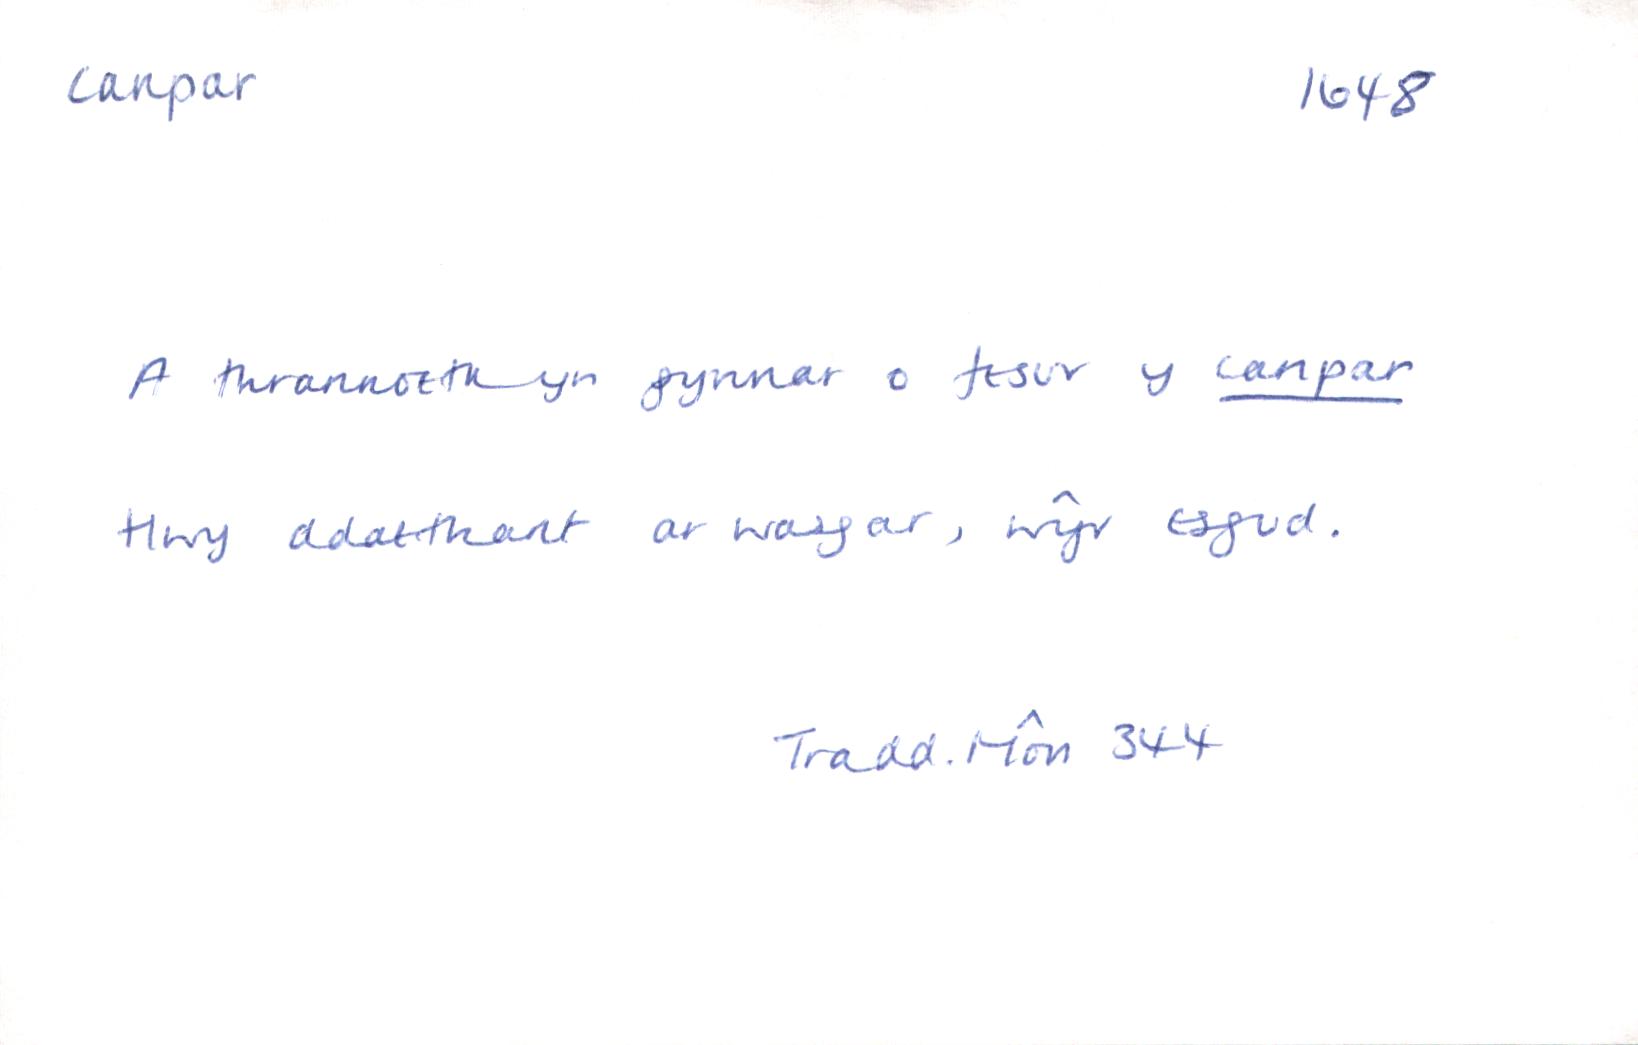 canpar 1648
A thrannoeth yn gynnar o fesur y canpar
Hwy ddaethant ar wasgar, wŷr esgud.
Tradd. Môn 344